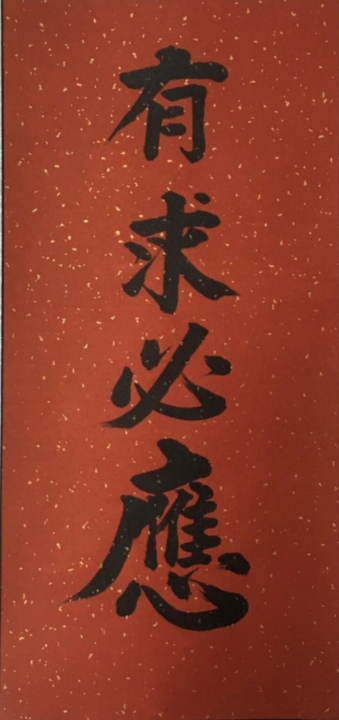 有求必應